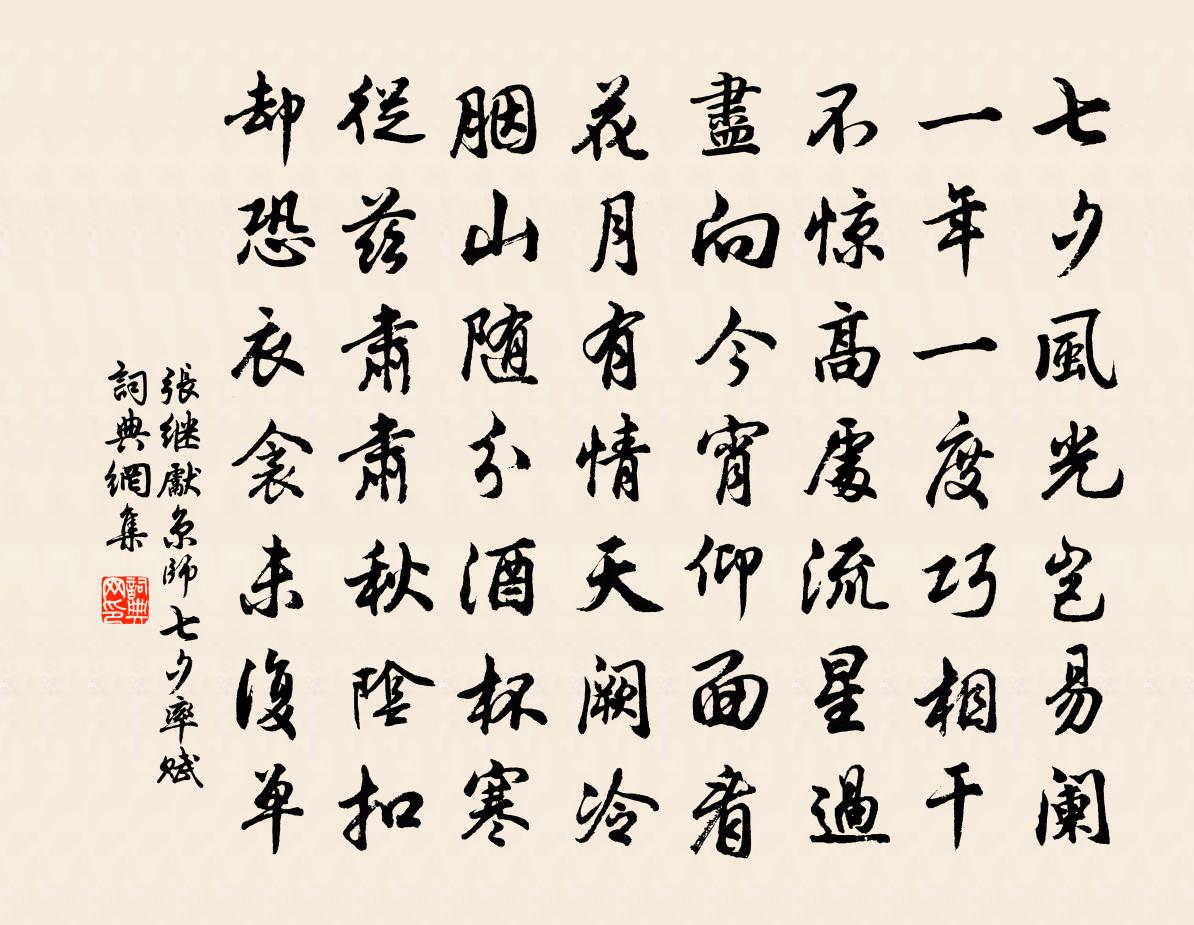 七夕風光豈易闌
一年一度巧相干
不惊高處流星過
盡向今宵仰面看
花月有情天闕冷
胭山随分酒杯寒
從茲肅肅秋陰扣
却恐衣衾未復单
張继獻京師七夕率赋
詞典網集